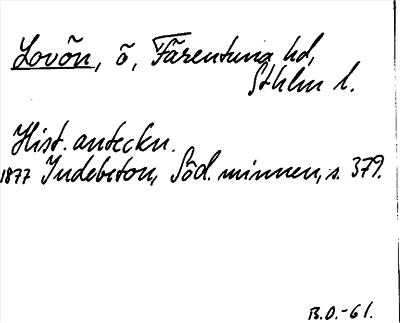 Lovön, ö, Färentuna hd,
Sthlm l.
Hist. anteckn.
1877 Indebetou, Söd. minnen, s. 379.
B.O.-61.